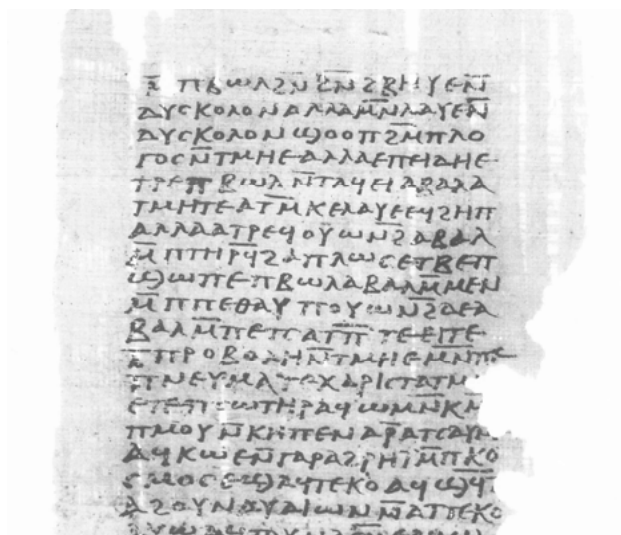 ⲙ̄ ⲡⲃⲱⲗ ϩⲛ̄ ϩⲛ̄ϩⲃⲏⲩⲉ ⲛ̄
ⲇⲩⲥⲕⲟⲗⲟⲛ ⲁⲗⲗⲁ ⲙⲛ̄ ⲗⲁⲩⲉ ⲛ̄
ⲇⲩⲥⲕⲟⲗⲟⲛ ϣⲟⲟⲡ ϩⲙ̄ ⲡⲗⲟ
ⲅⲟⲥ ⲛ̄ⲧⲙⲏⲉ ⲁⲗⲗⲁ ⲉⲡⲉⲓⲇⲏ ⲉ
ⲧⲣⲉ ⲡⲃⲱⲗ ⲛ̄ⲧⲁϥⲉⲓ ⲁⲃⲁⲗ ⲁ
ⲧⲙⲏⲧⲉ ⲁⲧⲙ̄ⲕⲉ ⲗⲁⲩⲉ ⲉϥϩⲏⲡ
ⲁⲗⲗⲁ ⲁⲧⲣⲉϥⲟⲩⲱⲛϩ̄ ⲁⲃⲁⲗ
ⲙ̄ⲡⲧⲏⲣϥ̄ ϩⲁⲡⲗⲱⲥ ⲉⲧⲃⲉ ⲡ
ϣⲱⲡⲉ ⲡⲃⲱⲗ ⲁⲃⲁⲗ ⲙ̄ⲙⲉⲛ
ⲙ̄ⲡⲡⲉⲑⲁⲩ ⲡⲟⲩⲱⲛϩ̄ ⲇⲉ ⲁ
ⲃⲁⲗ ⲙ̄ⲡⲉⲧⲥⲁⲧⲡ̄ ⲧⲉⲉⲓ ⲧⲉ
ⲧⲡⲣⲟⲃⲟⲗⲏ ⲛ̄ⲧⲙⲏⲉ ⲙⲛ̄ ⲡⲉ
ⲡⲛⲉⲩⲙⲁ ⲧⲉⲭⲁⲣⲓⲥ ⲧⲁⲧⲙ
ⲉ ⲧⲉ ⲡⲥⲱⲧⲏⲣ ⲁϥⲱⲙⲛ̄ⲕ ⲙ̄
ⲡⲙⲟⲩ ⲛ̄ⲕⲏⲡ ⲉⲛ ⲁⲣⲁ ⲁⲧⲥⲁⲩⲛ
ⲁϥⲕⲱⲉ ⲛ̄ⲅⲁⲣ ⲁϩⲣⲏⲓ̈ ⲙ̄ⲡⲕⲟ
ⲥⲙⲟⲥ ⲉϣⲁϥⲧⲉⲕⲟ ⲁϥϣϥ̄
ⲁϩⲟⲩⲛ ⲁⲩⲁⲓⲱⲛ ⲛ̄ⲁⲧⲧⲉⲕⲟ